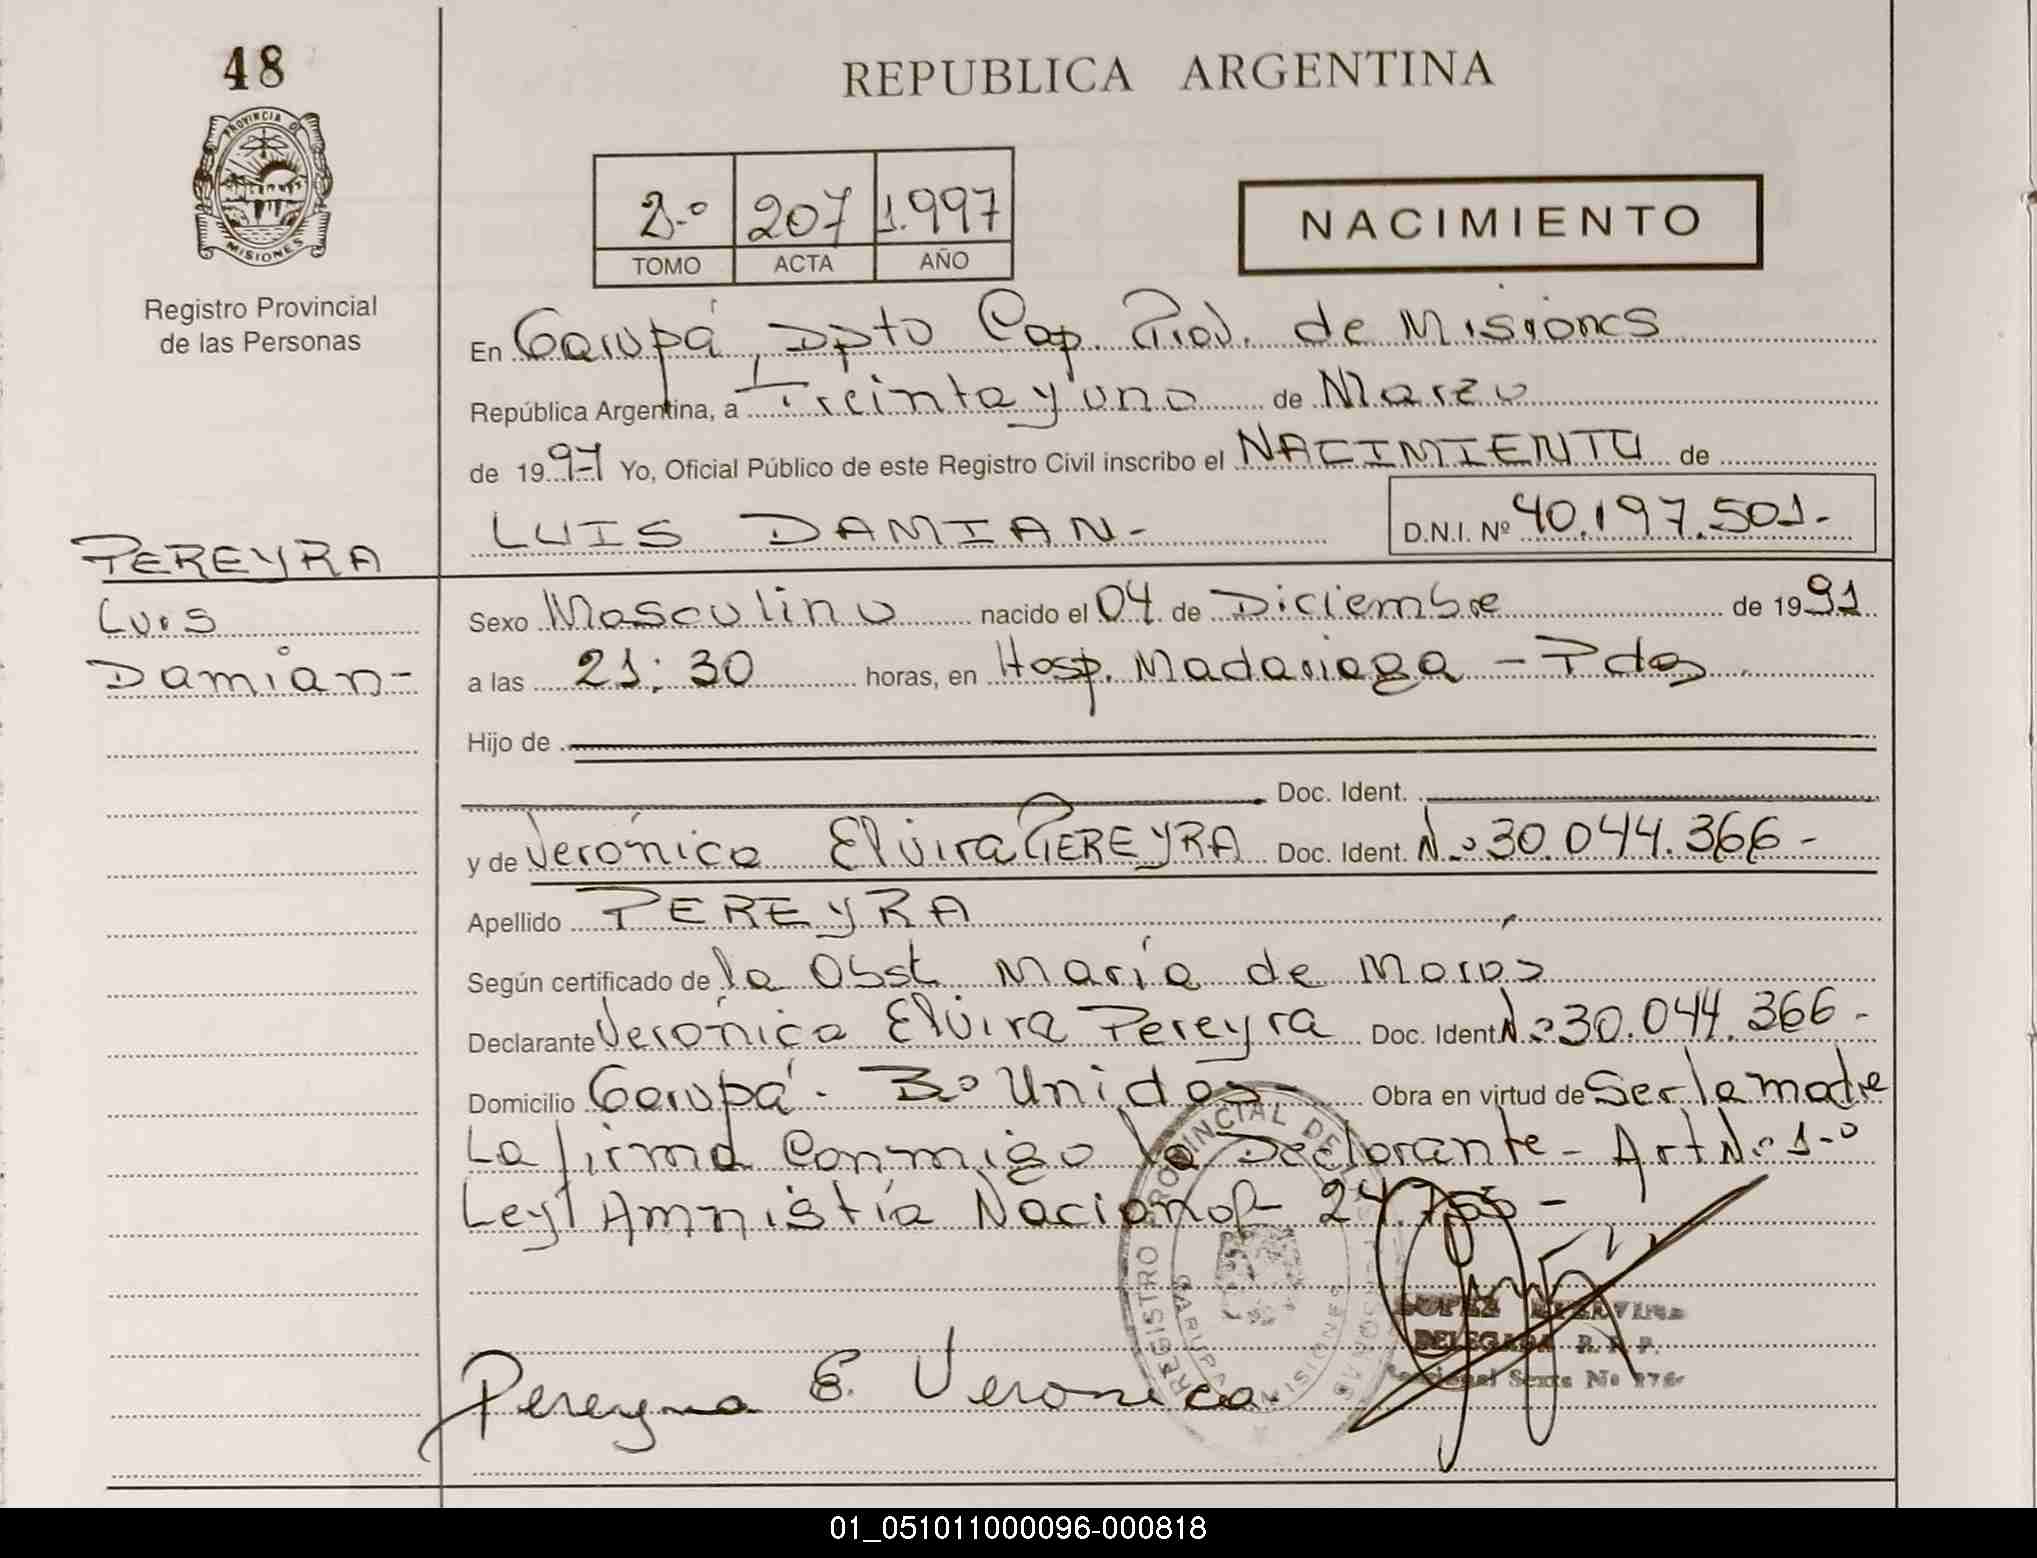 48
REPUBLICA ARGENTINA
PROVINCIA DE
MISIONES
2.º 207 1.997
TOMO ACTA AÑO
NACIMIENTO
Registro Provincial
de las Personas
En Garupá, Dpto Cap. Prov. de Misiones
República Argentina, a Treinta y uno de Marzo
de 1997 Yo, Oficial Público de este Registro Civil inscribo el NACIMIENTO de
LUIS DAMIAN- D.N.I. Nº 40.197.501-
PEREYRA
Luis
Damian-
Sexo Masculino nacido el 04 de Diciembre de 1991
a las 21:30 horas, en Hosp. Madariaga - Pdas
Hijo de
Doc. Ident.
y de Verónica Elvira PEREYRA Doc. Ident. N.º 30.044.366-
Apellido PEREYRA
Según certificado de la Obst María de
Declarante Verónica Elvira Pereyra Doc. Ident N.º 30.044.366-
Domicilio Garupá. Bº Unidos- Obra en virtud de Ser la madre
La firma conmigo la Declarante- Art N.º 1-º
Ley Amnistía Nacional
REGISTRO PROVINCIAL DE
GARUPA
MISIONES
LOPEZ
DELEGADA R.P.P.
Pereyra E. Veronica.
01_051011000096-000818